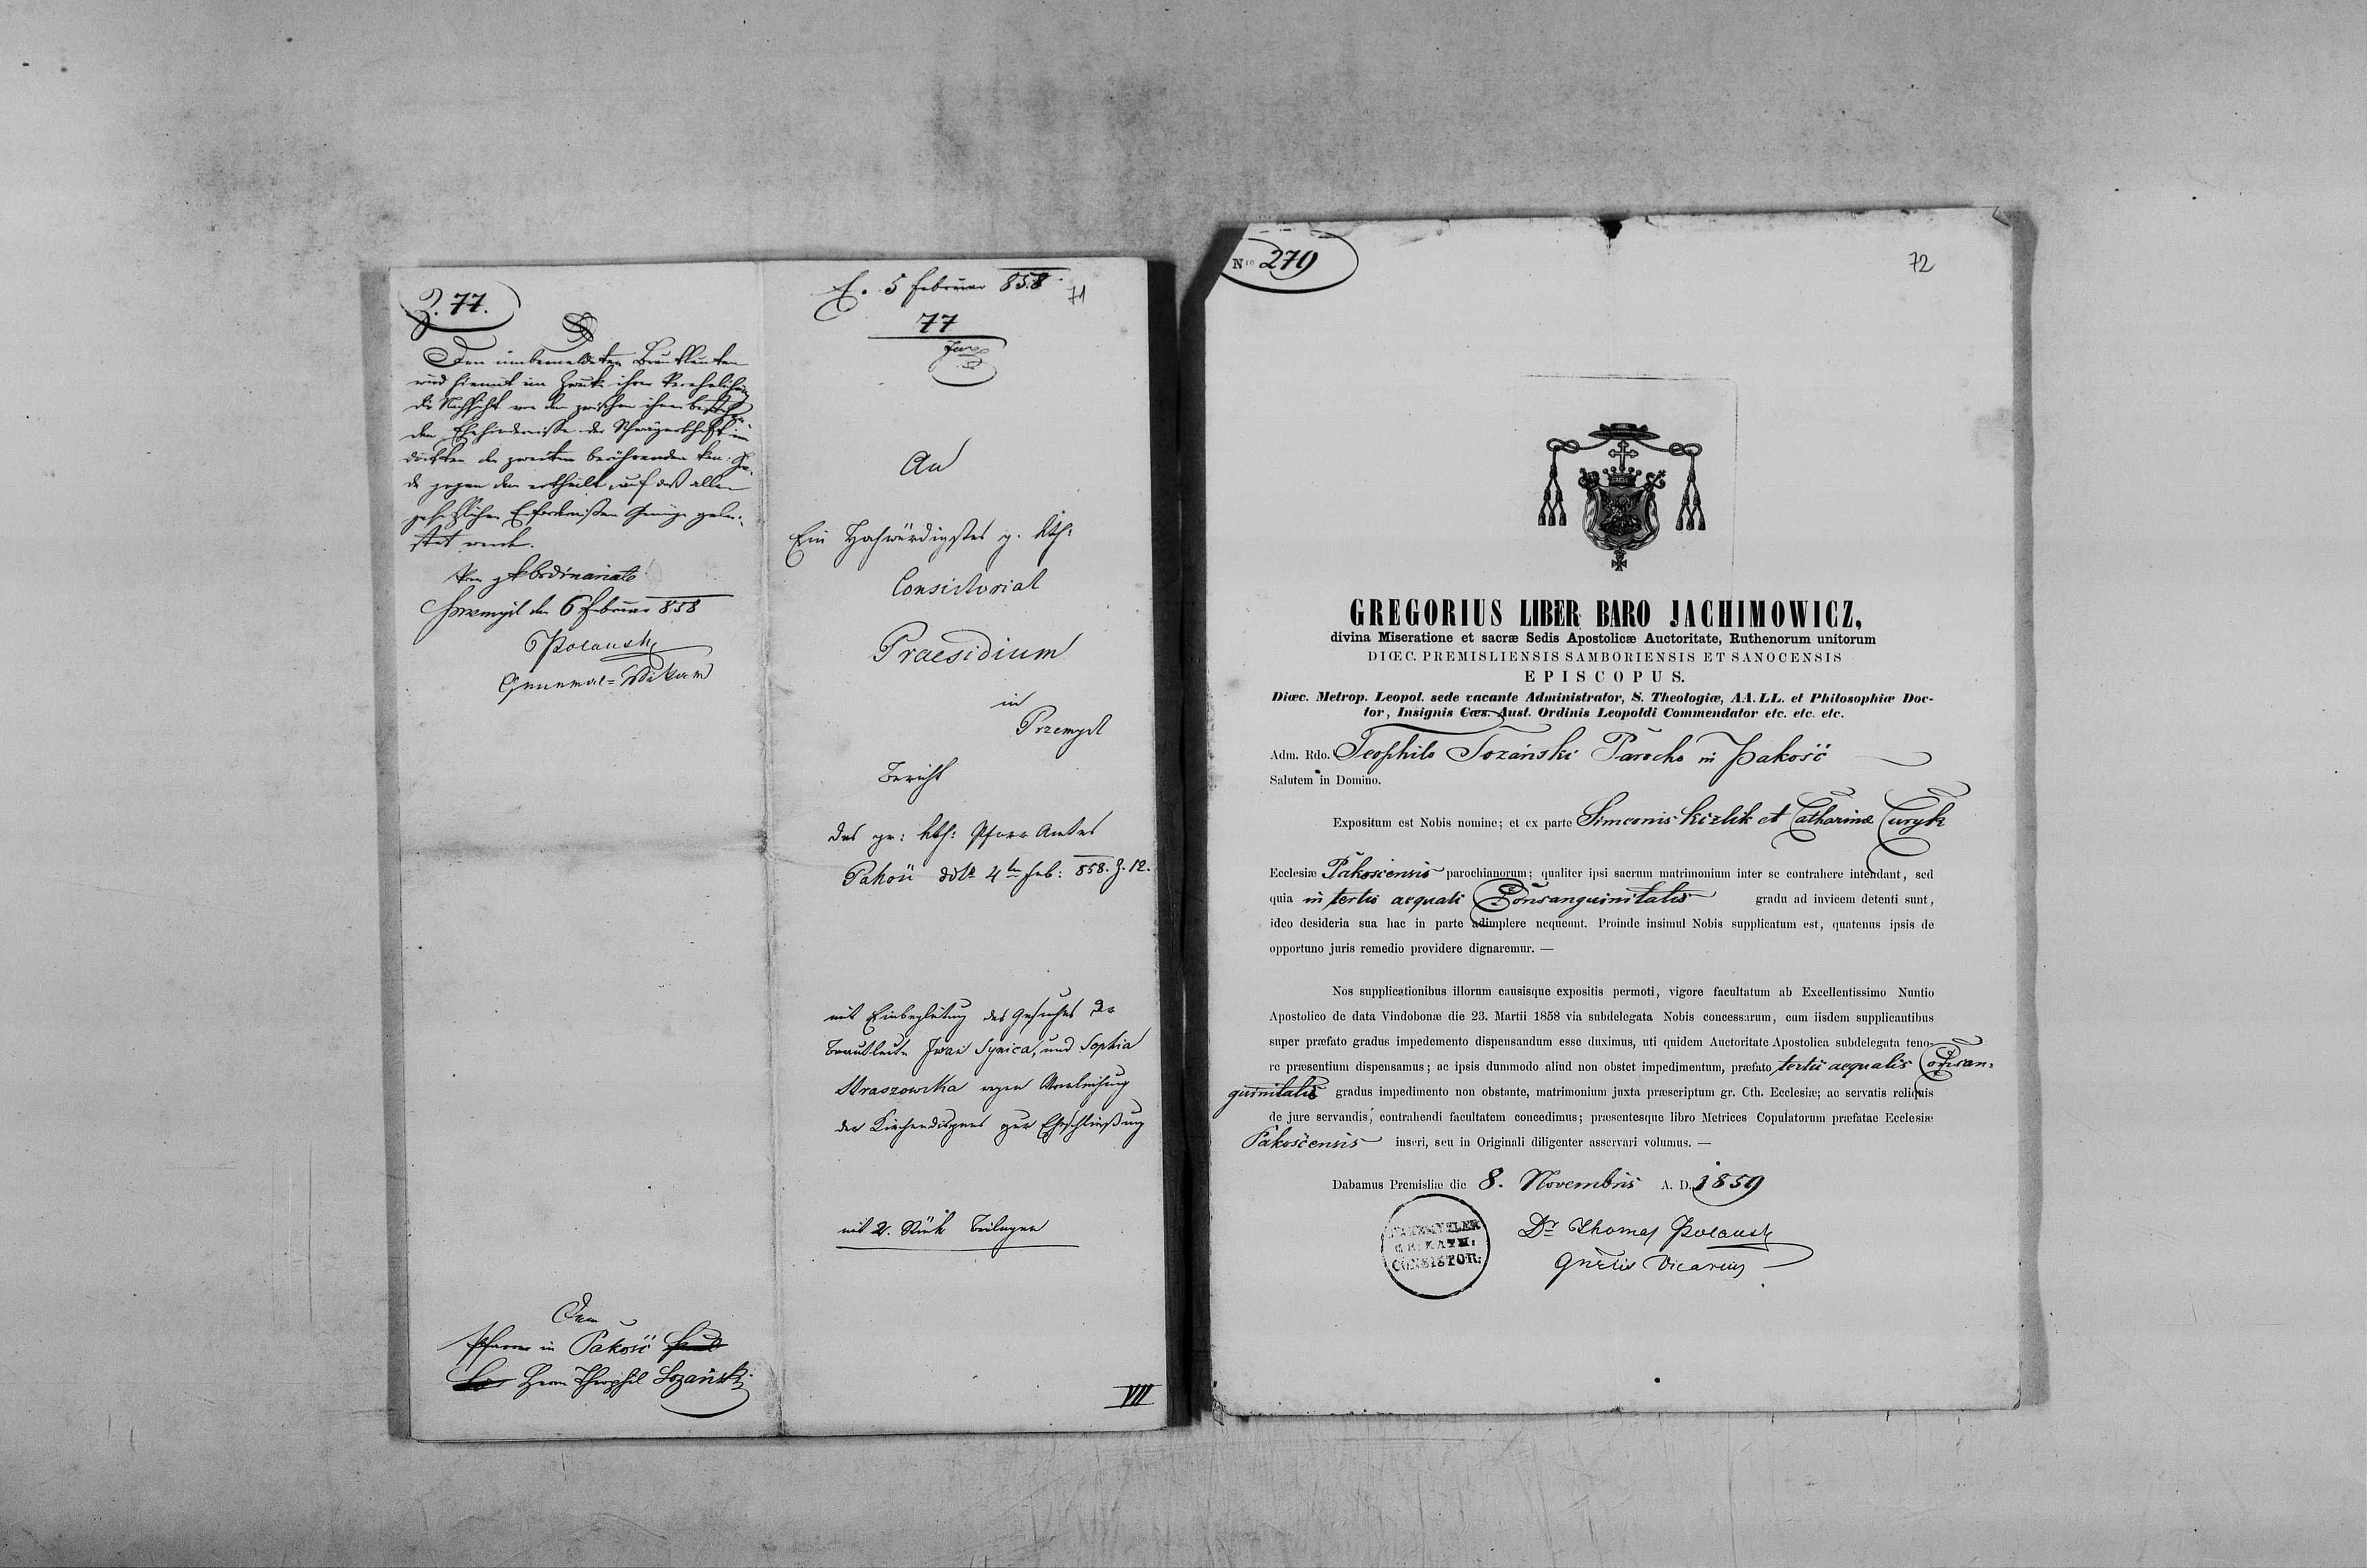 Z. 77.
Den innbemeldeten Brautleuten
wird hiemit im Zwecke ihrer Verehelichung
die Nachsicht von dem zwischen ihnen bestehen-
den Ehehindernisse der Schwägerschaft im
dritten den zweiten berührenden Gra-
de gegen dem ertheilt, auf daß allen
gesetzlichen Erfordernißen Genüge gelei-
stet werde.
Vom Ordinariate
Przemysl den 6 Februar 858
Polansky
General=Vikar
Dem
Pfarrer in Pakość
Herrn Theophil Łozański
E. 5 Februar 858
71
77
An
Ein Hochwürdigstes g. kth:
Consistorial
Praesidium
in
Przemysl
Bericht
des gr: kth: Pfarr Amtes
Pakość ddto 4ten Feb: 858. Z. 12.
mit Einbegleitung des Gesuches der
Brautleute Iwan Syrica, und Sophia
Straszowska wegen Verleihung
der Kirchendispens zur Eheschließung
mit 2. Stück Beilagen
VII
Nro 279
72
GREGORIUS LIBER BARO JACHIMOWICZ,
divina Miseratione et sacræ Sedis Apostolicæ Auctoritate, Ruthenorum unitorum
DIŒC. PREMISLIENSIS SAMBORIENSIS ET SANOCENSIS
EPISCOPUS.
Diœc. Metrop. Leopol. sede vacante Administrator, S. Theologiæ, AA. LL. et Philosophiæ Doc-
tor, Insignis Cæs. Aust. Ordinis Leopoldi Commendator etc. etc. etc.
Adm. Rdo. Teophilo Łozański Parocho in Pakość
Salutem in Domino.
Expositum est Nobis nomine; et ex parte Simeonis Kizlik et Catharinæ Curyk
Ecclesiæ Pakoscensis parochianorum; qualiter ipsi sacrum matrimonium inter se contrahere intendant, sed
quia in tertio aequali Consanguinitatis gradu ad invicem detenti sunt,
ideo desideria sua hac in parte adimplere nequeunt. Proinde insimul Nobis supplicatum est, quatenus ipsis de
opportuno juris remedio providere dignaremur. —
Nos supplicationibus illorum causisque expositis permoti, vigore facultatum ab Excellentissimo Nuntio
Apostolico de data Vindobonæ die 23. Martii 1858 via subdelegata Nobis concessarum, cum iisdem supplicantibus
super præfato gradus impedemento dispensandum esse duximus, uti quidem Auctoritate Apostolica subdelegata teno-
re præsentium dispensamus; ac ipsis dummodo aliud non obstet impedimentum, præfato tertii aequalis Consan-
guinitatis gradus impedimento non obstante, matrimonium juxta præscriptum gr. Cth. Ecclesiæ; ac servatis reliquis
de jure servandis, contrahendi facultatem concedimus; præsentesque libro Metrices Copulatorum præfatae Ecclesiæ
Pakoscensis inseri, seu in Originali diligenter asservari volumus. —
Dabamus Premisliæ die 8. Novembris A. D. 1859
PRZEMYSLER
GR: KATH:
CONSISTOR:
Dr Thomas Polansky
Gnrlis Vicarius